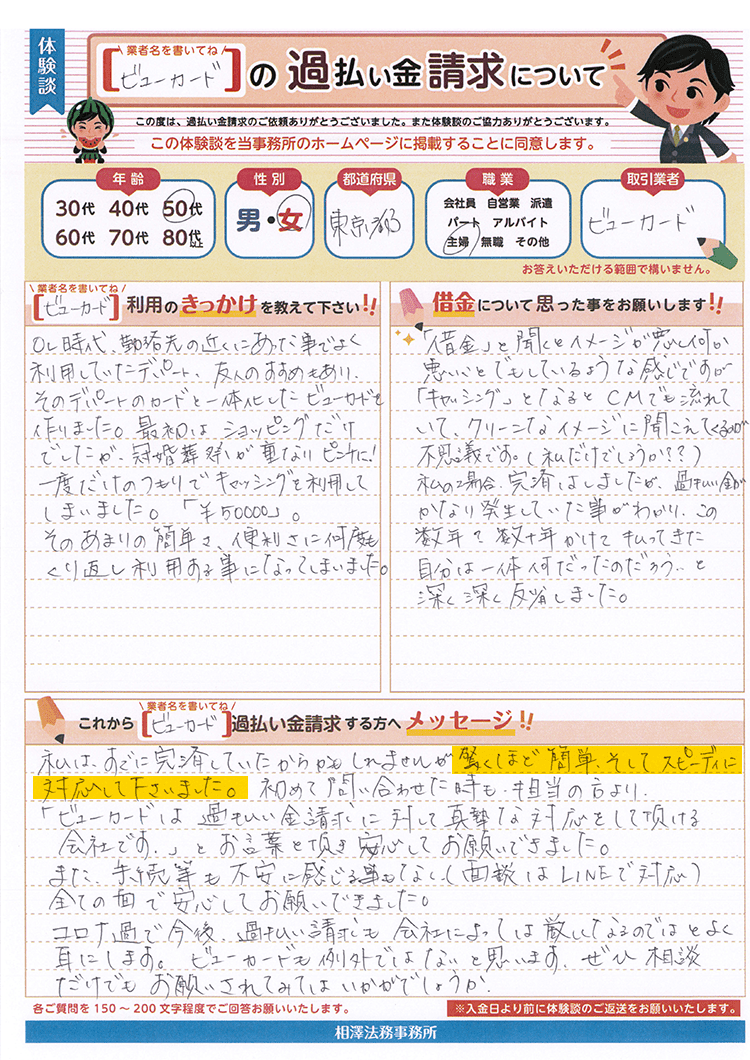 体験談
業者名を書いてね
[ビューカード]の過払い金請求について
この度は、過払い金請求のご依頼ありがとうございました。また体験談のご協力ありがとうございます。
この体験談を当事務所のホームページに掲載することに同意します。
年齢
30代 40代 50代
60代 70代 80代以上
性別
男・女
都道府県
東京都
職業
会社員 自営業 派遣
パート アルバイト
主婦 無職 その他
取引業者
ビューカード
お答えいただける範囲で構いません。
業者名を書いてね
[ビューカード]利用のきっかけを教えて下さい!!
OL時代、勤務先の近くにあった事でよく
利用していたデパート、友人のすすめもあり、
そのデパートのカードと一体化したビューカードを
作りました。最初はショッピングだけ
でしたが、冠婚葬祭が重なりピンチに!
一度だけのつもりでキャッシングを利用して
しまいました。「¥50000」。
そのあまりの簡単さ、便利さに何度も
くり返し利用する事になってしまいました。
借金について思った事をお願いします!!
「借金」と聞くとイメージが悪し何か
悪いことでもしているような感じですが
「キャッシング」となるとCMでも流れて
いて、クリーンなイメージに聞こえてくるのが
不思議です。(私だけでしょうか??)
私の場合、完済はしましたが、過払い金が
かなり発生していた事がわかり、この
数年?数十年かけて払ってきた
自分は一体何だったのだろう‥と
深く深く反省しました。
業者名を書いてね
これから[ビューカード]過払い金請求する方へメッセージ!!
私は、すでに完済していたからかもしれませんが驚くほど簡単、そしてスピーディに
対応して下さいました。初めて問い合わせた時も、担当の方より、
「ビューカードは過払い金請求に対して真摯な対応をして頂ける
会社です。」とお言葉を頂き安心してお願いできました。
また、手続等も不安に感じる事もなく(面談はLINEで対応)
全ての面で安心してお願いできました。
コロナ過で今後、過払い請求も会社によっては厳しくなるのではとよく
耳にします。ビューカードも例外ではないと思います、ぜひ相談
だけでもお願いされてみてはいかがでしょうか。
各ご質問を150～200文字程度でご回答お願いいたします。
※入金日より前に体験談のご返送をお願いいたします。
相澤法務事務所